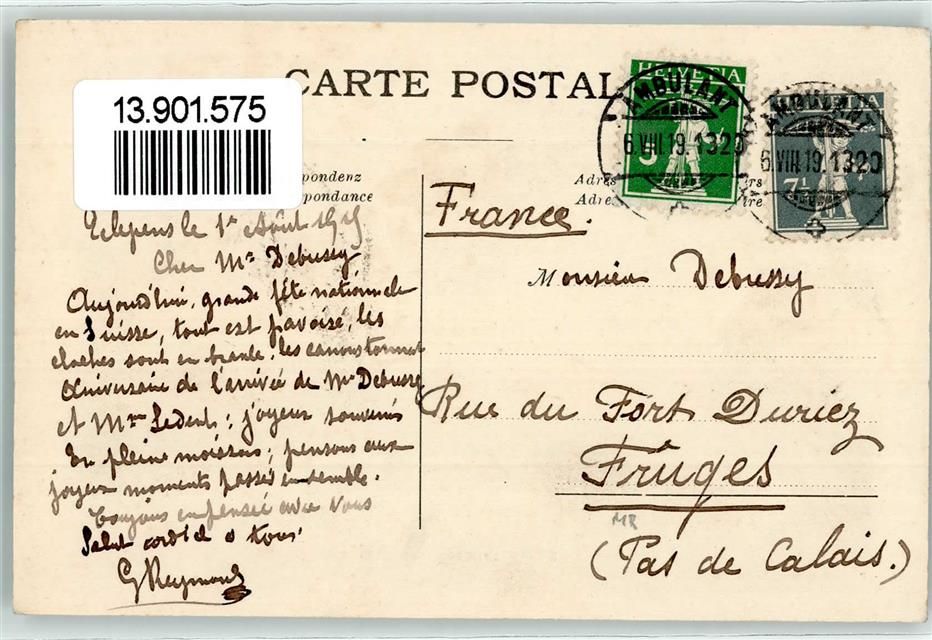 13.901.575
CARTE POSTAL
pondenz
pondance
Adres
Adre
rs
ire
HELVETIA
5
AMBULANT
6.VIII.19.1320
HELVETIA
7½
AMBULANT
6.VIII.19.1320
France.
Monsieur Debussy
Rue du Fort Duriez
Fruges
MR
(Pas de Calais.)
Eclepens le 1er Août 1919
Cher Mr Debussy
Aujourd'hui, grande fête nationale
en Suisse, tout est pavoisé, les
cloches sont en branle, les canons tonnent
Aniversaire de l'arrivée de Mr Debussy
et Mme Ledent; joyeux souvenirs
En pleine moisson; pensons aux
joyeux moments passés ensemble.
Toujours en pensée avec vous
Salut cordial a tous
G Reymond